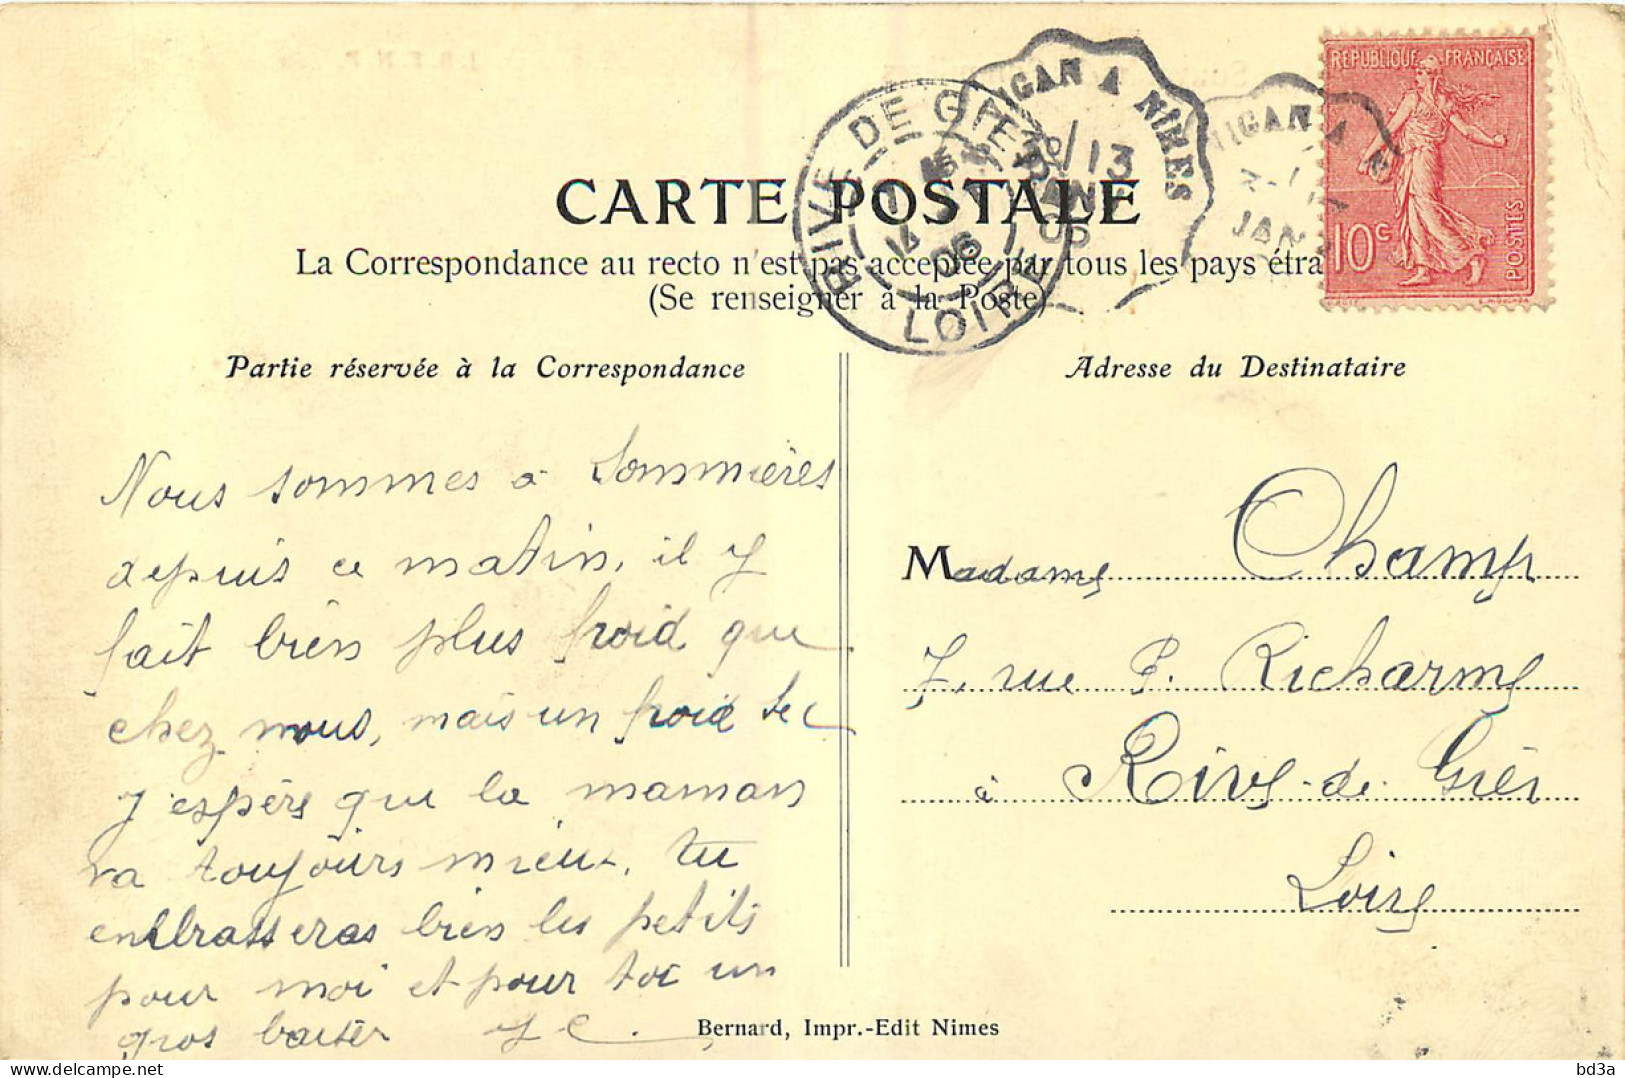 RÉPUBLIQUE FRANÇAISE
10c
POSTES
IGAN A NIMES
13
IGAN A N
JAN
RIVE DE GIER
14
06
LOIRE
CARTE POSTALE
La Correspondance au recto n'est pas acceptée par tous les pays étra
(Se renseigner à la Poste)
Partie réservée à la Correspondance
Nous sommes à Sommières
depuis ce matin, il y
fait bien plus froid que
chez nous, mais un froid sec
J'espère que la maman
va toujours mieux, tu
embrasseras bien les petits
pour moi et pour toi un
gros baiser J C.
Adresse du Destinataire
Madame Champ
7, rue P. Richarme
à Rive-de-Gier
Loire
Bernard, Impr.-Edit Nimes
bd3a